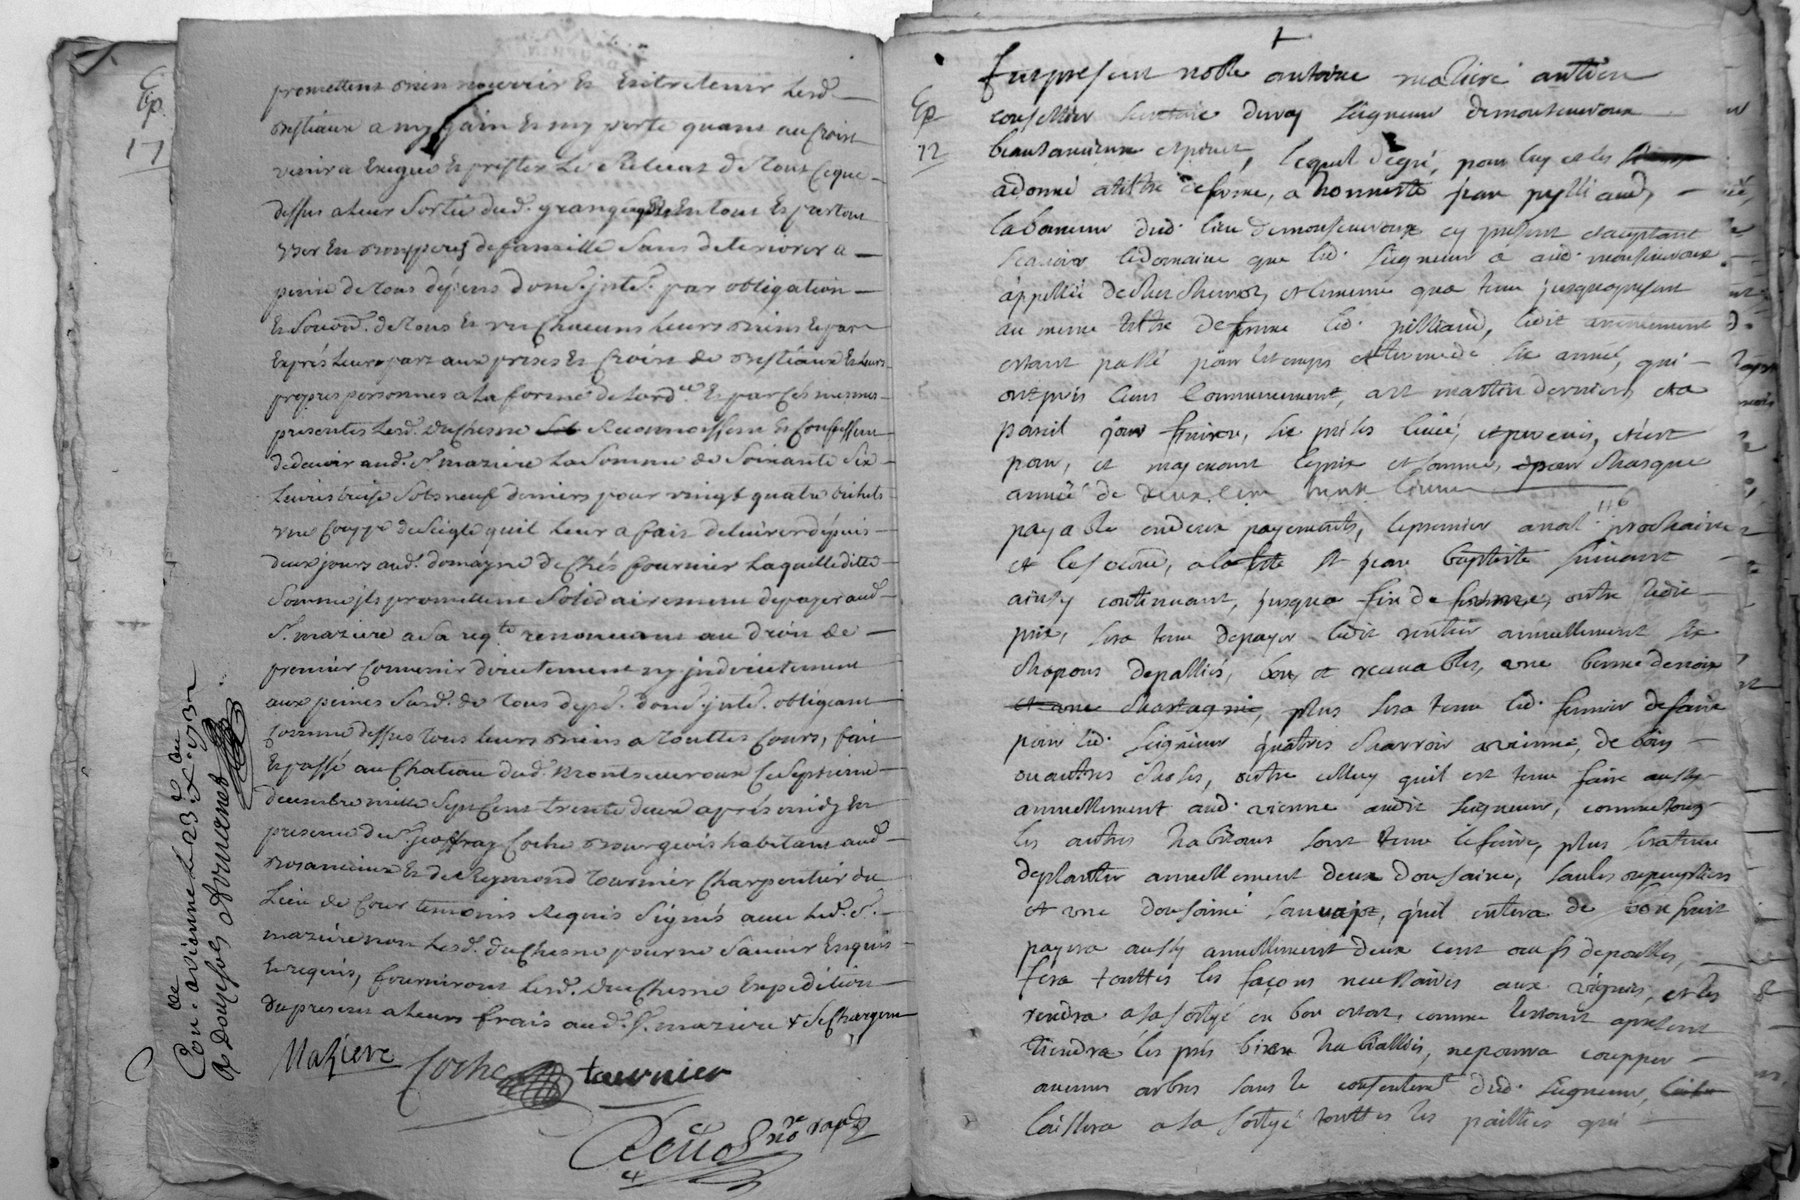 promettent bien nourrir et entretenir lesd.
bestiaux a my gain et my perte quant au croist
venir a exegué et prister le relicat de tout ce que
dessus a leur sortie dud. grangeage et en tout et par tout
user en bons peres de famille sans deteriorer a
peine de tous dépens dom. inte. par obligation
et soumd. de tous et un chacuns leurs biens et par
exprés leur part aux prises et croist de bestiaux et leurs
propres personnes a la forme de lord.ce et par ces mesmes
presentes lesd. duchesne reconnoissent et confessent
de devoir aud. sr. maziere la somme de soixante six
livres treise sols neuf deniers pour vingt quatre bichets
une couppe de seigle quil leur a fait delivrer depuis
deux jours aud. domayne de chés fournier laquelle ditte
somme ils promettent solidairement de payer aud.
sr. maziere a sa reqte renonceant au droit de
premier convenir directement ny indirectement
aux peines susd. de tous depe. dome. inte. obligeant
comme dessus tous leurs biens a touttes cours, fait
et passé au chateau dud. montseveroux le septieme
decembre mille sept cent trente deux aprés midy en
presence de sr. geoffray coche bourgeois habitant aud.
et de Reymond tournier charpentier du
lieu de cour temoins requis signés avec led. sr.
maziere non lesd. duchesne pour ne scavoir enquis
et requis, fourniront lesd. duchesne expédition
du present a leurs frais aud. sr. maziere &
Maziere coche tournier
Con.de a vienne le 23e xbre 1732
R douze sols
Ep
17
Ep
12
fut present noble antoine maziere antien
conseiller secretaire du roy seigneur de montseveroux
et pinet, lequel de gré, pour luy et les siens
a donné a titre de ferme, a honneste jean pilliaud,
laboureur dud. lieu de montseveroux cy present et acceptant
scavoir le domaine que led. seigneur a aud. montseveroux
appellé de chez et comme qua tenu jusqua present
au meme titre de ferme led. pilliaud, ledit
estant passé pour le temps et terme de six année, qui
ont pris leurs commencement, a st martin dernier, et a
pareil jour finira, six prises levée, et perceus, et c'est
pour, et moyenant le prix et somme, pour chasque
année de deux cent trente livres
116
payable en deux payements, le premier a noel prochaine
et le second, a la fete st jean baptiste suivant
ainsy continuant, jusqua fin de ferme, outre ledit
prix, sera tenu de payer ledit rentier annuellement six
chapons de pallier, bons et recevables, une benne de noix
et une chastagnie, plus sera tenu led. fermier de faire
pour led. seigneur quatres charroir a vienne, de bois
ou autres choses, outre celluy quil est tenu faire aussy
annuellement aud. vienne audit seigneur, comme tous
les autres habitans sont tenu le faire, plus sera tenu
de planter annuellement deux dousaine, saules ou peupliers
et une dousaine sauvajot, qu'il entera de bon fruit
payera aussy annuellement deux cent oeufs de poulles,
fera touttes les façons necessaires aux vignes, et les
rendra a sa sortye en bon estat, comme
tiendra les prés bien habiallies, ne pourra coupper
aucuns arbres sans le consentemt dud. seigneur,
laissera a sa sortye touttes les pailles qui